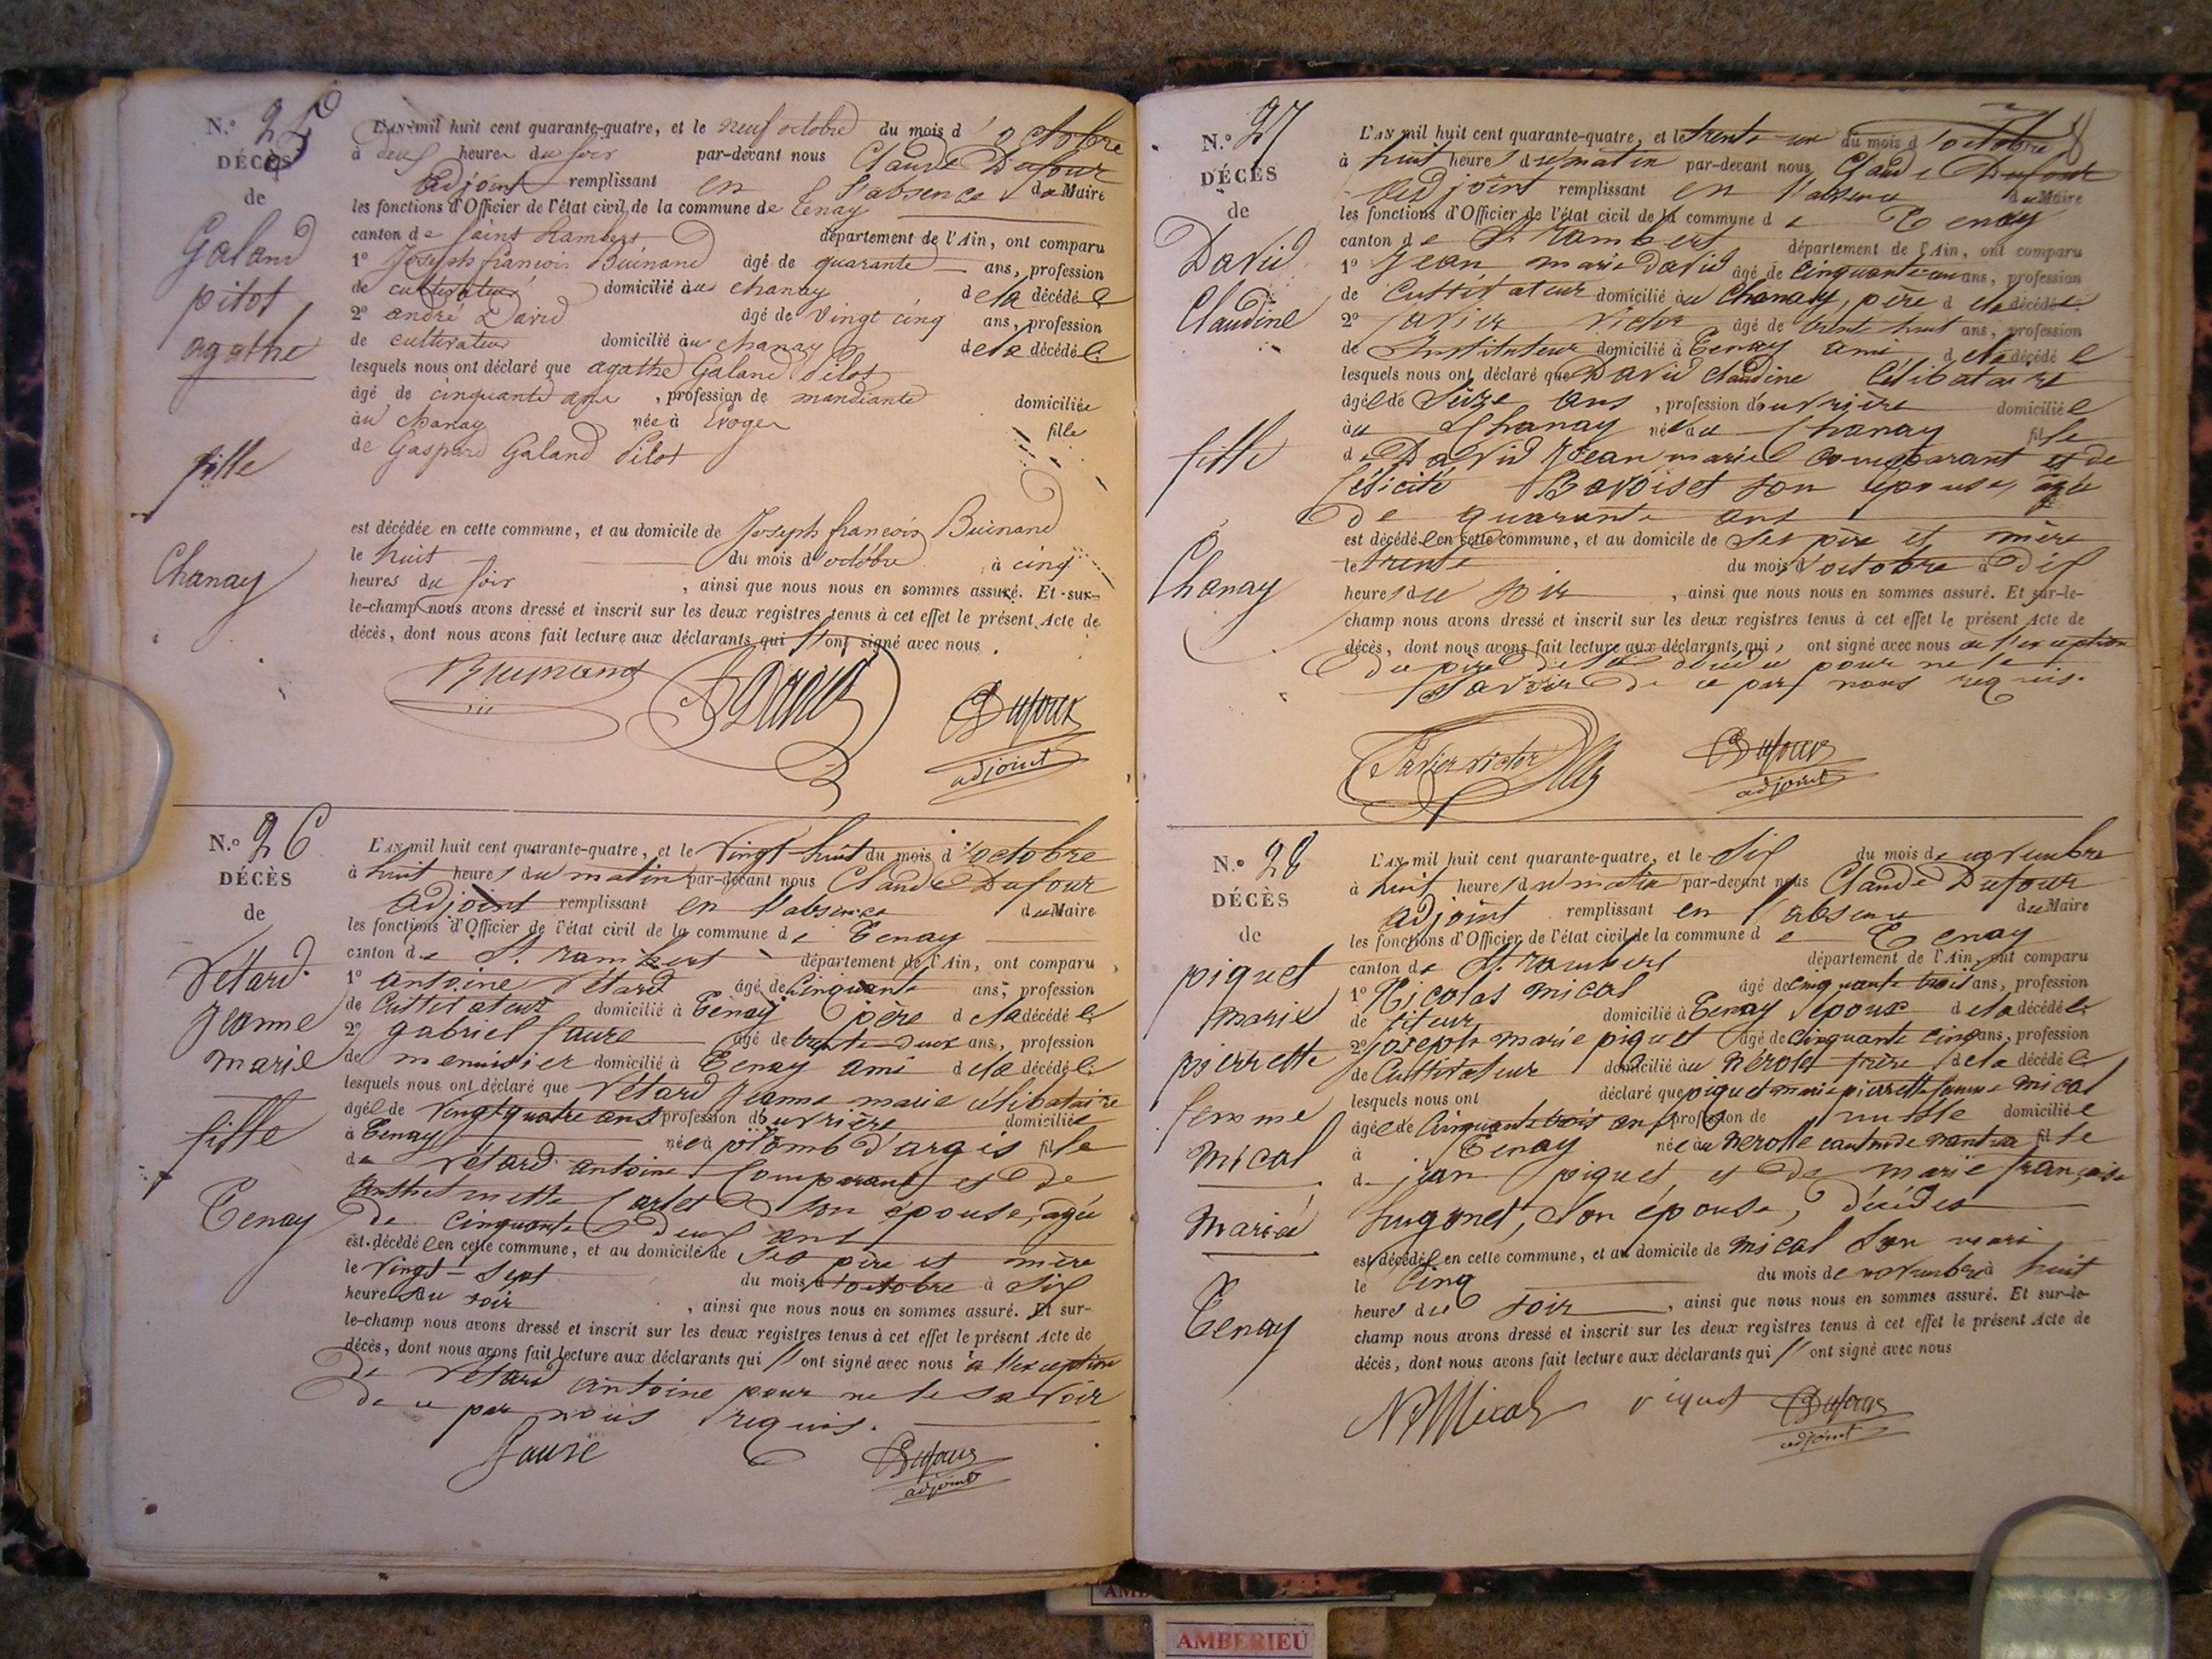 N.o 25
DÉCÈS
de
Galand
pitot
agathe
fille
Chanay
L'AN mil huit cent quarante-quatre, et le neuf octobre du mois d'octobre
à deux heures du soir par-devant nous Claude Dufour
adjoint remplissant en l'absence du Maire
les fonctions d'Officier de l'état civil de la commune de Tenay
canton de Saint Rambert département de l'Ain, ont comparu
1o Joseph francois Buinand âgé de quarante ans, profession
de cultivateur domicilié au chanay de la décédée
2o andré David âgé de vingt cinq ans, profession
de cultivateur domicilié au chanay de la décédée
lesquels nous ont déclaré que agathe Galand Pilot
âgé de cinquante ans, profession de mandiante domiciliée
au chanay née à Evoges fille
de Gaspard Galand Pilot
est décédée en cette commune, et au domicile de Joseph francois Buinand
le huit du mois d'octobre à cinq
heures du soir, ainsi que nous nous en sommes assuré. Et sur-
le-champ nous avons dressé et inscrit sur les deux registres tenus à cet effet le présent Acte de
décès, dont nous avons fait lecture aux déclarants qui l'ont signé avec nous.
Buynand David Dufour
adjoint
N.o 26
DÉCÈS
de
Vétard
Jeanne
marie
fille
Tenay
L'AN mil huit cent quarante-quatre, et le vingt-huit du mois d'octobre
à huit heures du matin par-devant nous Claude Dufour
adjoint remplissant en l'absence du Maire
les fonctions d'Officier de l'état civil de la commune de Tenay
canton de St. rambert département de l'Ain, ont comparu
1o antoine Vétard âgé de cinquante ans, profession
de Cultivateur domicilié à Tenay père de la décédée
2o gabriel faure âgé de trente deux ans, profession
de menuisier domicilié à Tenay ami de la décédée
lesquels nous ont déclaré que Vétard Jeanne marie célibataire
âgée de vingt quatre ans profession d'ouvrière domiciliée
à Tenay née à plomb d'argis fille
de Vétard antoine Comparant et de
Carlet son épouse, agée
de cinquante deux ans
est décédée en cette commune, et au domicile de ses père et mère
le vingt-sept du mois d'octobre à six
heures du soir, ainsi que nous nous en sommes assuré. Et sur-
le-champ nous avons dressé et inscrit sur les deux registres tenus à cet effet le présent Acte de
décès, dont nous avons fait lecture aux déclarants qui l'ont signé avec nous à l'exception
de Vétard antoine pour ne le savoir
de ce par nous requis.
faure Dufour
adjoint
N.o 27
DÉCÈS
de
David
Claudine
fille
Chanay
L'AN mil huit cent quarante-quatre, et le trente un du mois d'octobre
à huit heures du matin par-devant nous Claude Dufour
adjoint remplissant en l'absence du Maire
les fonctions d'Officier de l'état civil de la commune de Tenay
canton de St. rambert département de l'Ain, ont comparu
1o Jean marie David âgé de cinquante un ans, profession
de Cultivateur domicilié au Chanay, père de la décédée
2o Javier Victor âgé de trente huit ans, profession
de Instituteur domicilié à Tenay ami de la décédée
lesquels nous ont déclaré que David Claudine Célibataire
âgée de seize ans, profession d'ouvrière domiciliée
au Chanay née au Chanay fille
de David Jean marie comparant et de
félicité Bavoiset son épouse, agée
de quarante ans
est décédée en cette commune, et au domicile de ses père et mère
le trente du mois d'octobre à dix
heures du soir, ainsi que nous nous en sommes assuré. Et sur-le-
champ nous avons dressé et inscrit sur les deux registres tenus à cet effet le présent Acte de
décès, dont nous avons fait lecture aux déclarants qui, ont signé avec nous à l'exception
du père de la décédée pour ne le
savoir de ce par nous requis.
Javier victor Dufour
adjoint
N.o 28
DÉCÈS
de
piquet
marie
pierrette
femme
Mical
Mariée
Tenay
L'AN mil huit cent quarante-quatre, et le six du mois de novembre
à huit heures du matin par-devant nous Claude Dufour
adjoint remplissant en l'absence du Maire
les fonctions d'Officier de l'état civil de la commune de Tenay
canton de St. rambert département de l'Ain, ont comparu
1o Nicolas mical âgé de cinquante trois ans, profession
de domicilié à Tenay époux de la décédée
2o joseph marie piquet âgé de cinquante cinq ans, profession
de Cultivateur domicilié au nérolet frère de la décédée
lesquels nous ont déclaré que piquet marie pierrette femme mical
âgée de cinquante trois ans profession de nulle domiciliée
à Tenay née au nerolle canton de nantua fille
de jean piquet, et de marie françoise
hugonet, son épouse, décédés
est décédée en cette commune, et au domicile de mical son mari
le cinq du mois de novembre à huit
heures du soir, ainsi que nous nous en sommes assuré. Et sur-le-
champ nous avons dressé et inscrit sur les deux registres tenus à cet effet le présent Acte de
décès, dont nous avons fait lecture aux déclarants qui l'ont signé avec nous
N Mical piquet Dufour
adjoint
AMBERIEU